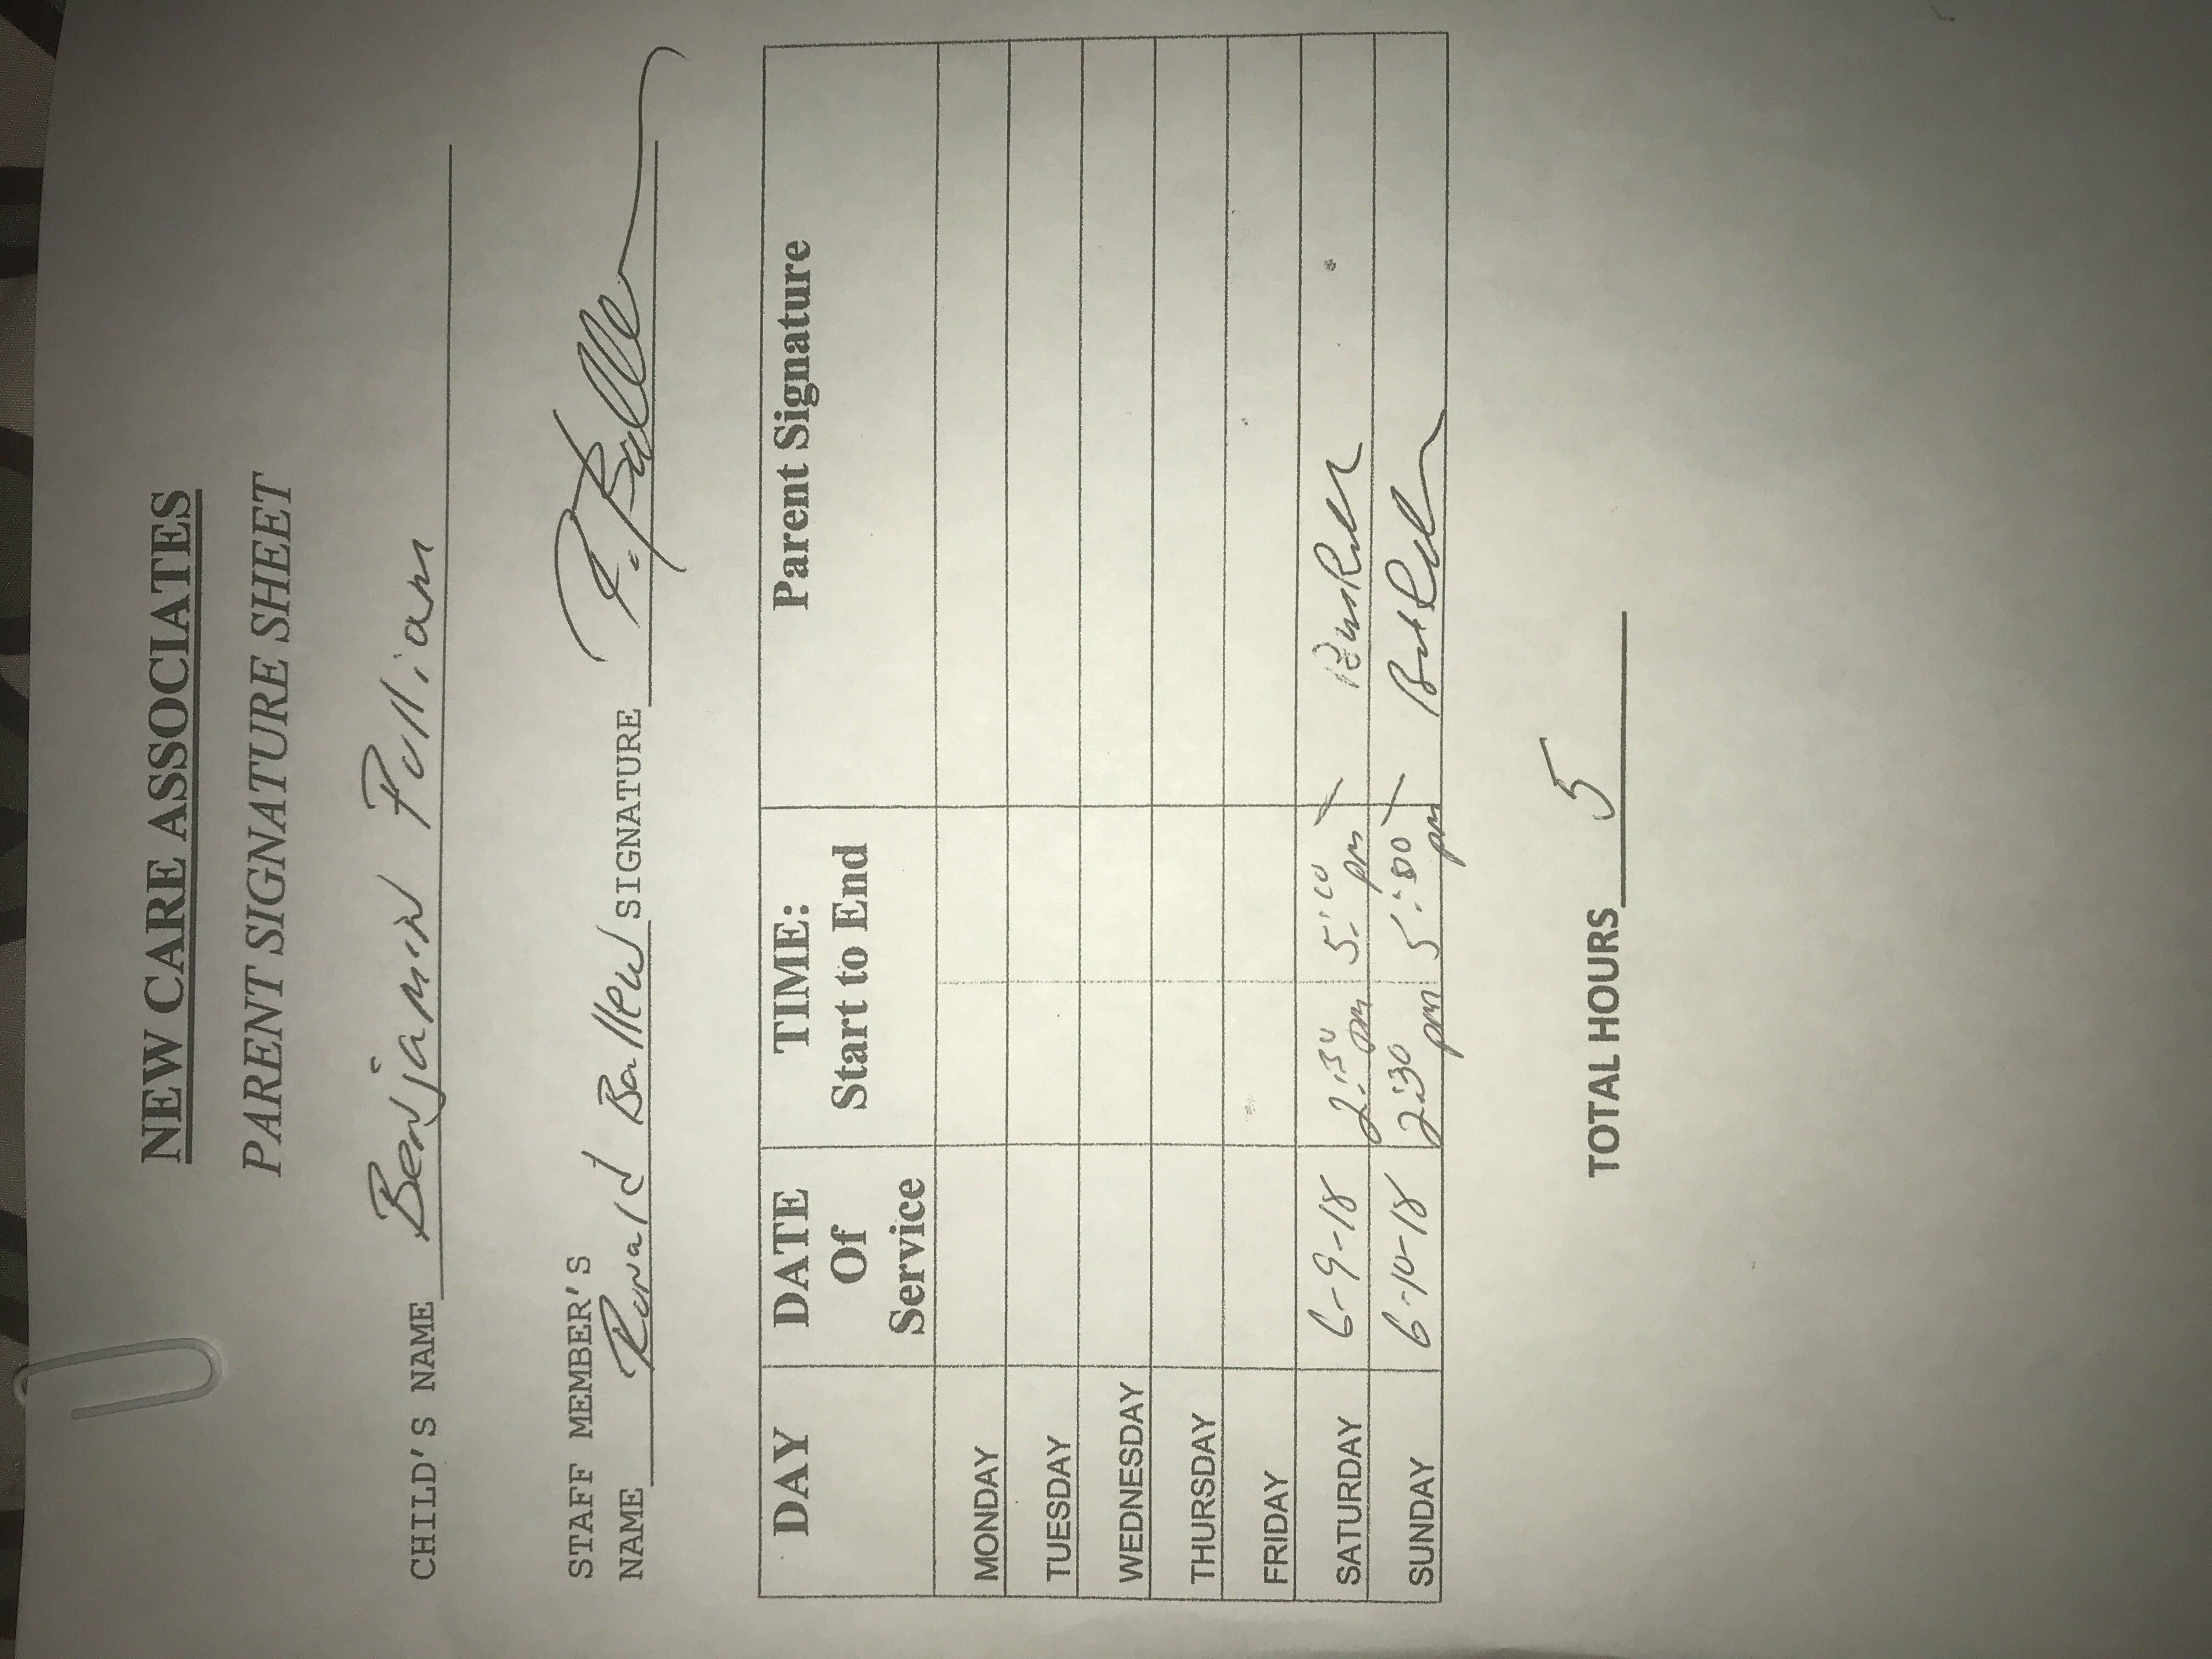 NEW CARE ASSOCIATES
PARENT SIGNATURE SHEET
CHILD'S NAME Benjamin Pulliam
STAFF MEMBER'S
NAME Ronald Ballew SIGNATURE
DAY DATE Of Service TIME: Start to End Parent Signature
MONDAY
TUESDAY
WEDNESDAY
THURSDAY
FRIDAY
SATURDAY 6-9-18 2:30 pm pm
SUNDAY 6-10-18 2:30 pm 5:00 pm
TOTAL HOURS 5